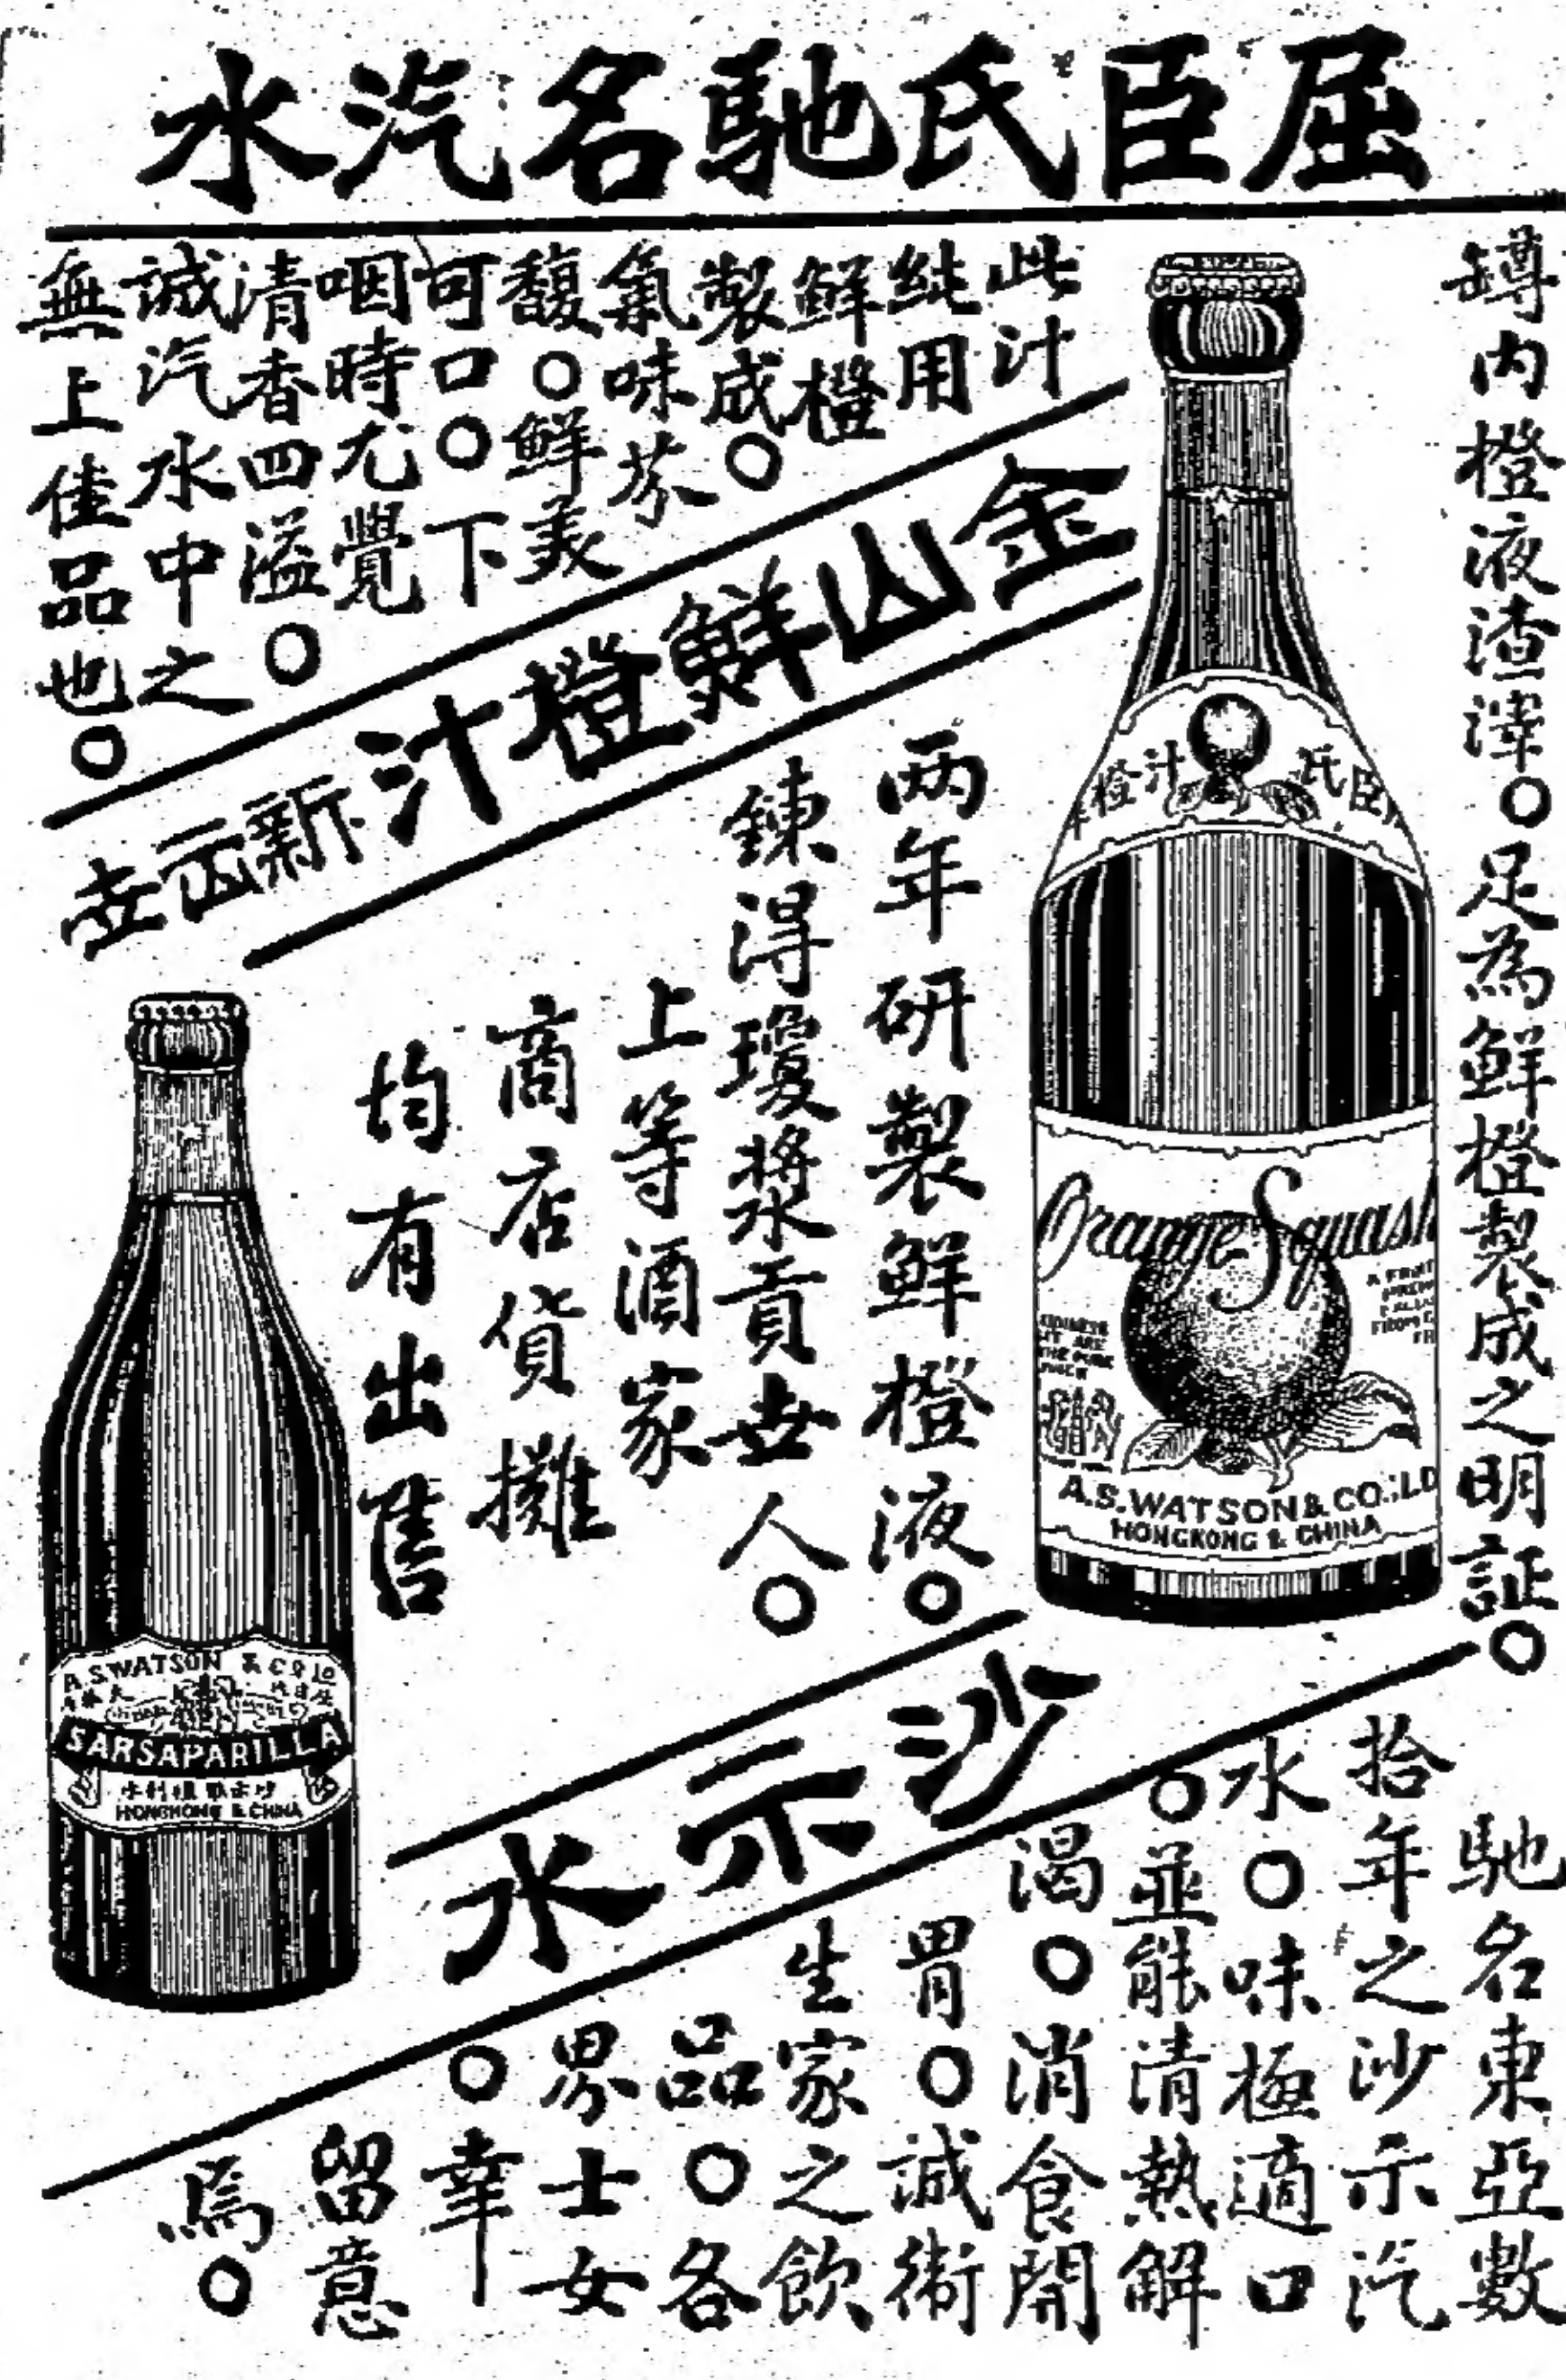 屈臣氏馳名汽水
罇内橙液渣滓○足為鮮橙製成之明証○
此汁
純用
鮮橙
製成○
氣味芬
馥○鮮美
可口○下
咽時尤覺
清香四溢○
誠汽水中之
無上佳品也○
金山鮮橙汁新面世
両年研製鮮橙液○
鍊得瓊漿貢世人○
上等酒家
商店貨攤
均有出售
臣氏
汁橙
Orange Squash
A.S. WATSON & CO.; LD
HONGKONG & CHINA
A.S. WATSON & CO Ld
SARSAPARILLA
HONGKONG & CHINA
沙示水
馳名東亞數
拾年之沙示汽
水○味極適口
○並能清熱解
渴○消食開
胃○誠衛
生家之飲
品○各
界士女
○幸
留意
焉○